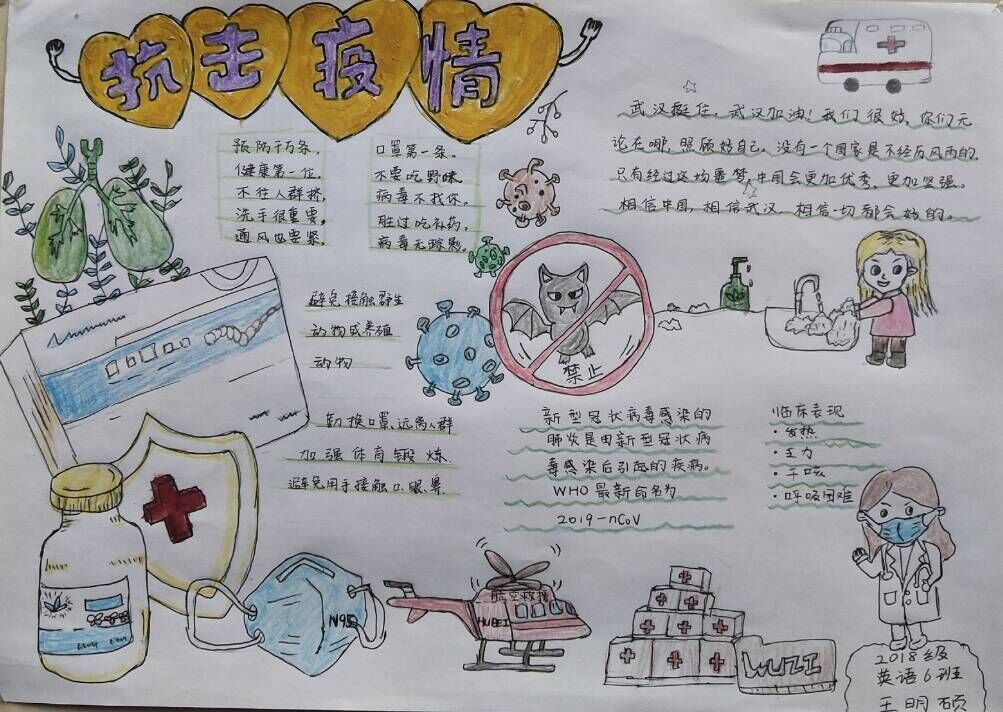 抗击疫情
预防千万条，
健康第一位。
不往人群挤，
洗手很重要。
通风也要紧。
口罩第一条。
不要吃野味
病毒不找你。
胜过吃补药，
病毒无踪影。
武汉挺住，武汉加油！我们很好，你们无
论在哪，照顾好自己。没有一个国家是不经历风雨的，
只有经过这场噩梦，中国会更加优秀，更加坚强。
相信中国，相信武汉，相信一切都会好的。
避免接触野生
动物或养殖
动物
禁止
勤换口罩、远离人群
加强体育锻炼
避免用手接触口、眼、鼻
新型冠状病毒感染的
肺炎是由新型冠状病
毒感染后引起的疾病。
WHO最新命名为
2019-nCoV
临床表现
·发热
·乏力
·干咳
·呼吸困难
N95
航空救援
HUBEI
WUZI
2018级
英语6班
王明硕